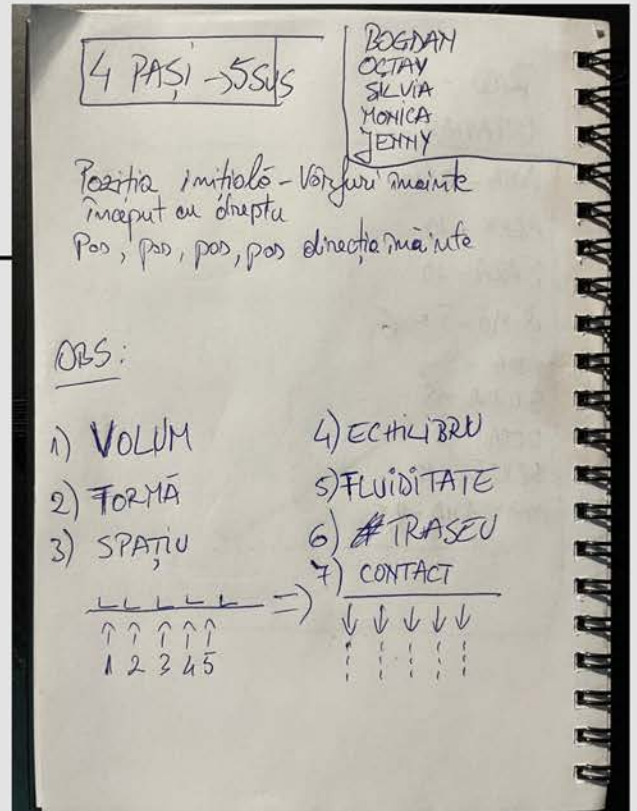 4 PAȘI → 5 SUS
BOGDAN
OCTAY
SILVIA
MONICA
JENNY
Poziția inițială - Vârfuri înainte
început cu dreptu
Pas, pas, pas, pas direcția înainte
OBS:
1) VOLUM
2) FORMĂ
3) SPAȚIU
4) ECHILIBRU
5) FLUIDITATE
6) TRASEU
7) CONTACT
1 2 3 4 5